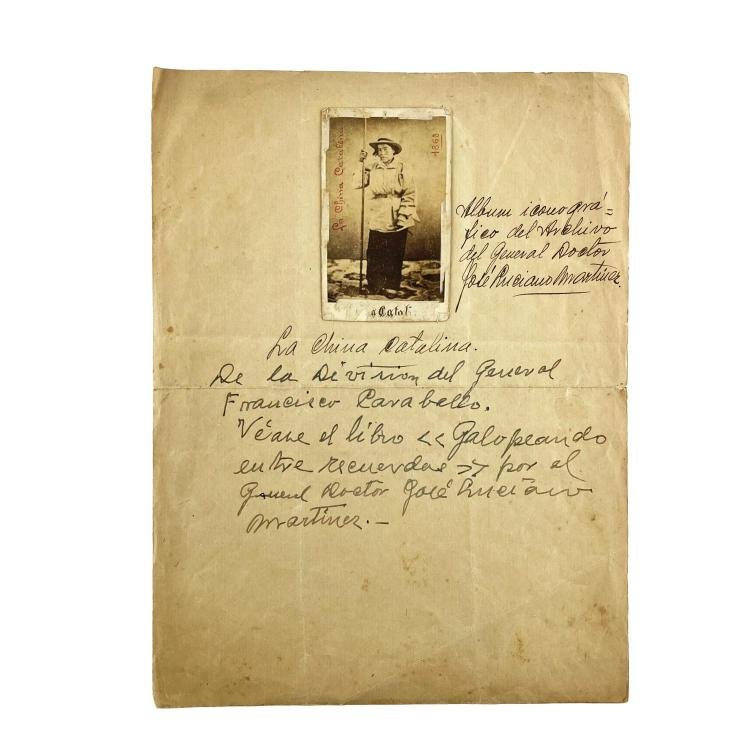 La China Catalina
1868
a Catal
Album iconográ=
fico del Archivo
del General Doctor
José Luciano Martinez.
La China Catalina.
De la Division del General
Francisco Caraballo.
Véase el libro << Galopeando
entre recuerdos >> por el
General Doctor José Luciano
Martinez.-